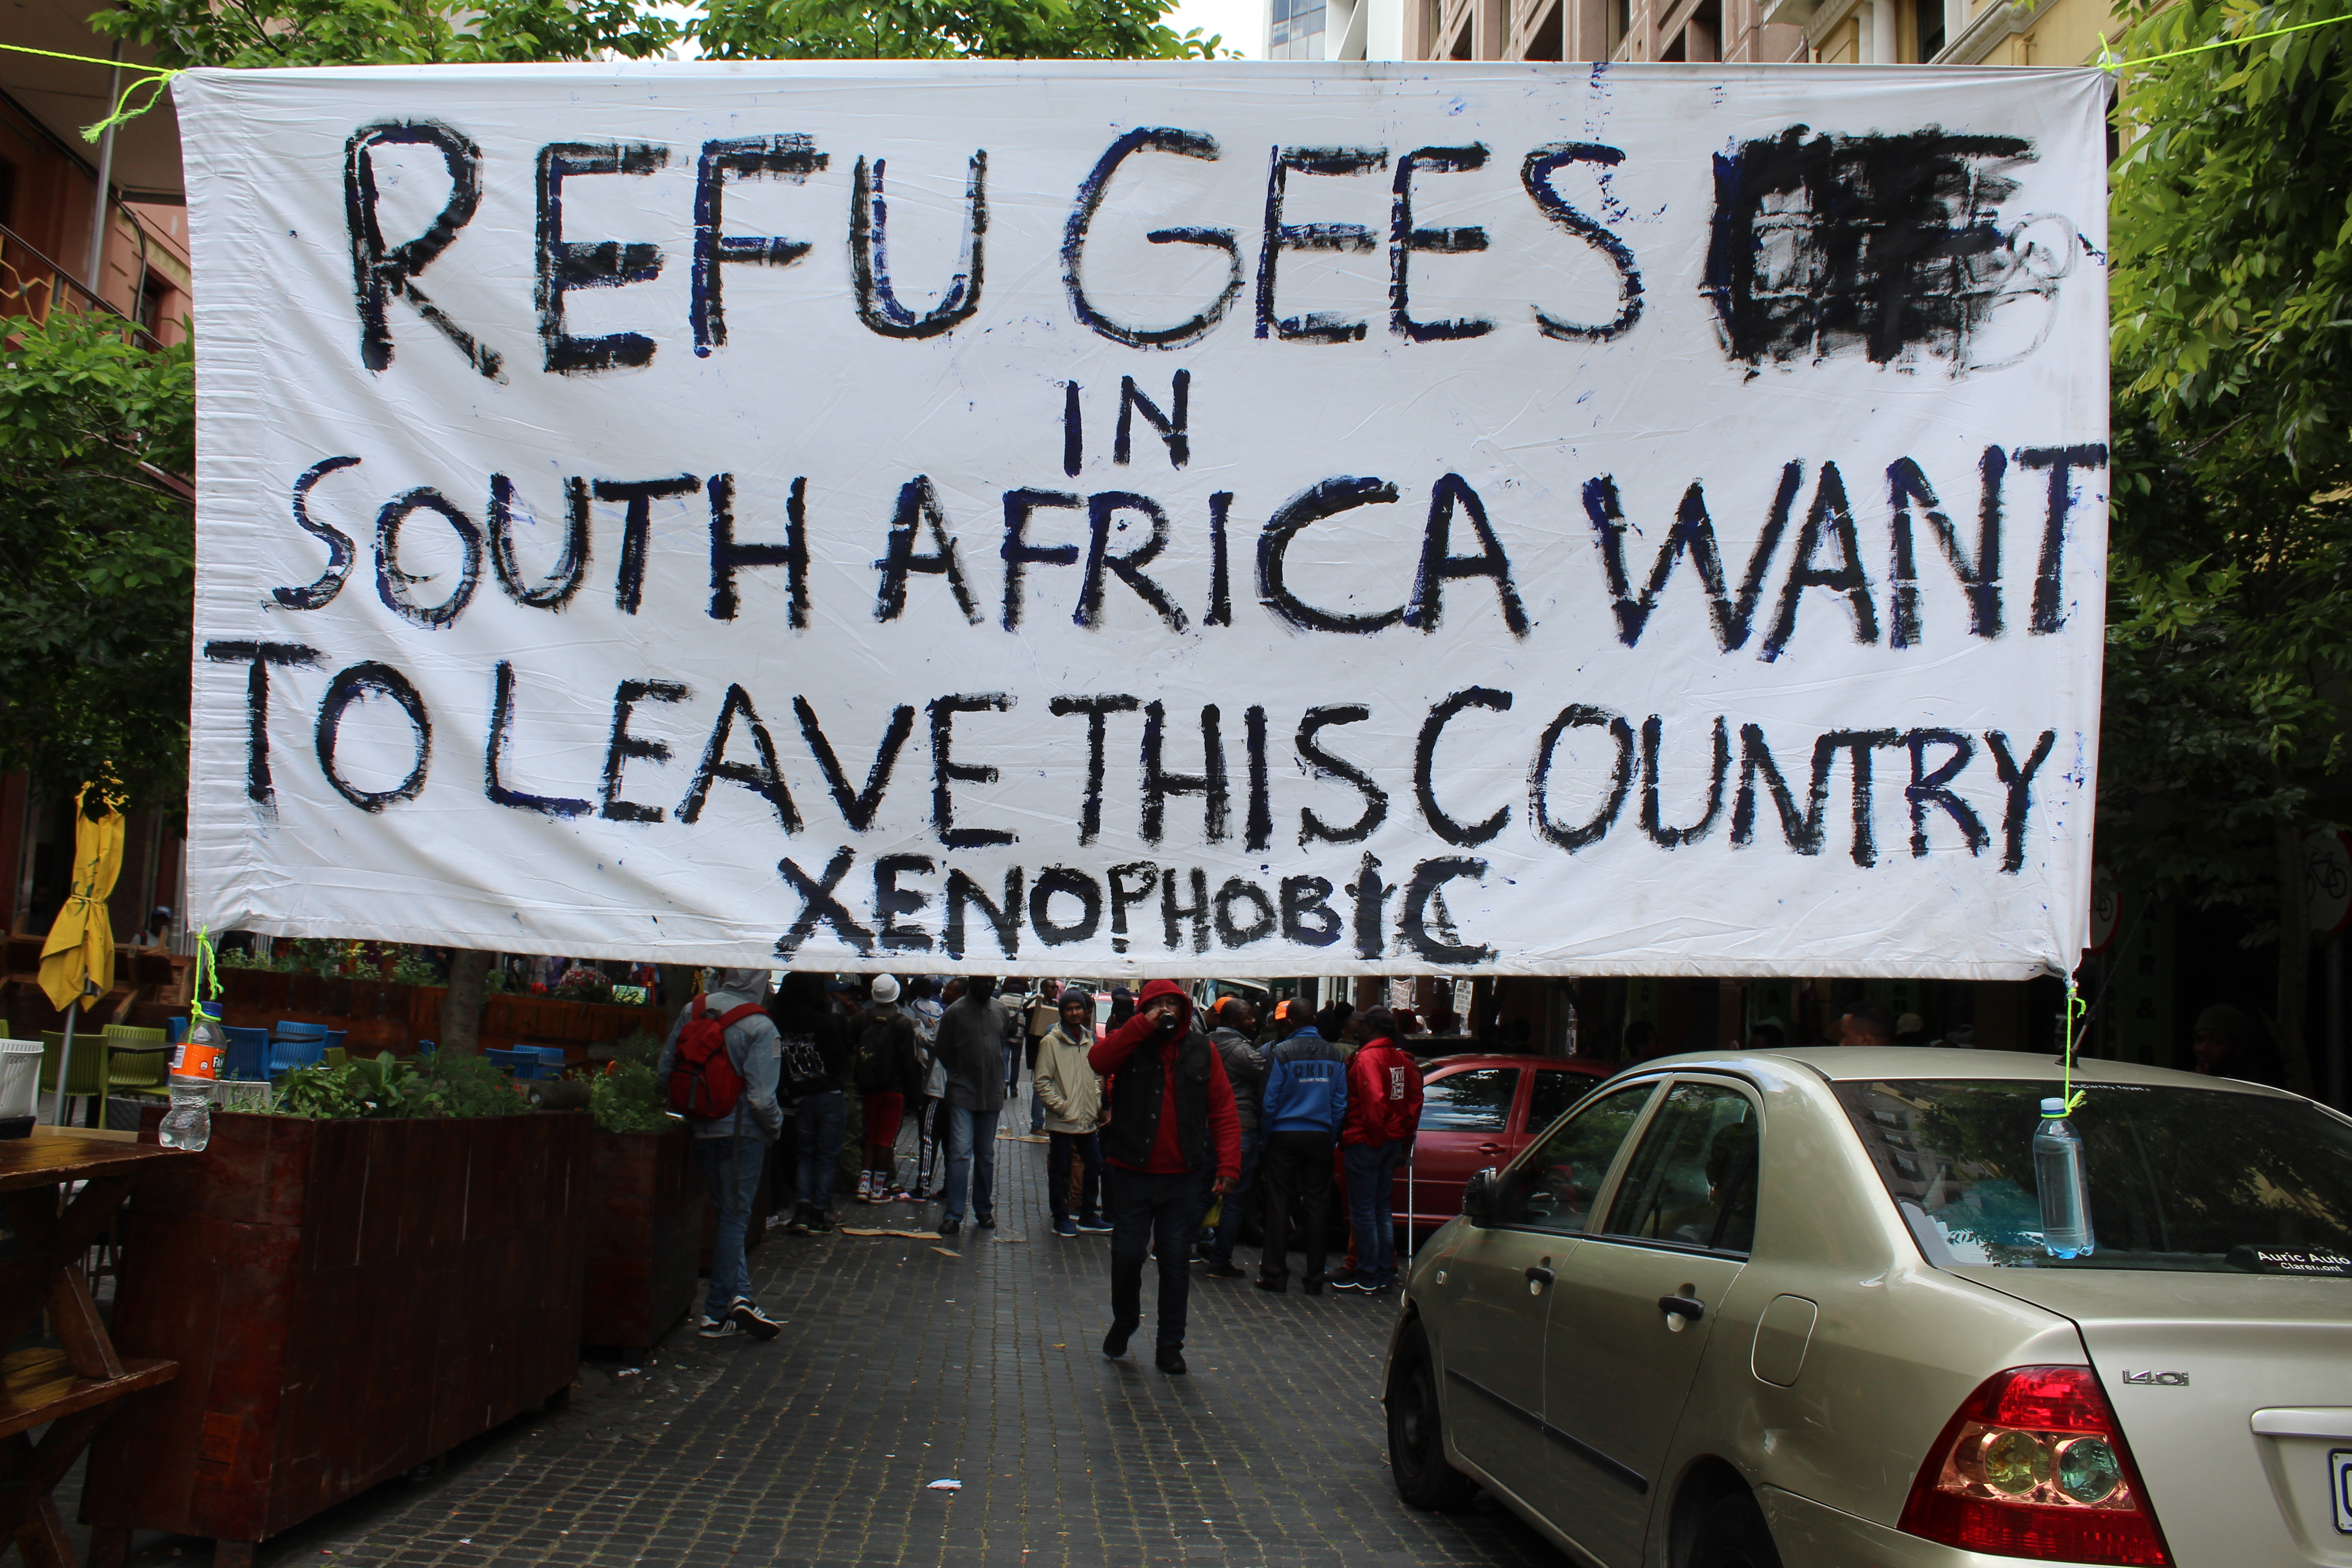 REFUGEES
IN
SOUTH AFRICA WANT
TO LEAVE THIS COUNTRY
XENOPHOBIC
Auric Auto
Claremont
140i